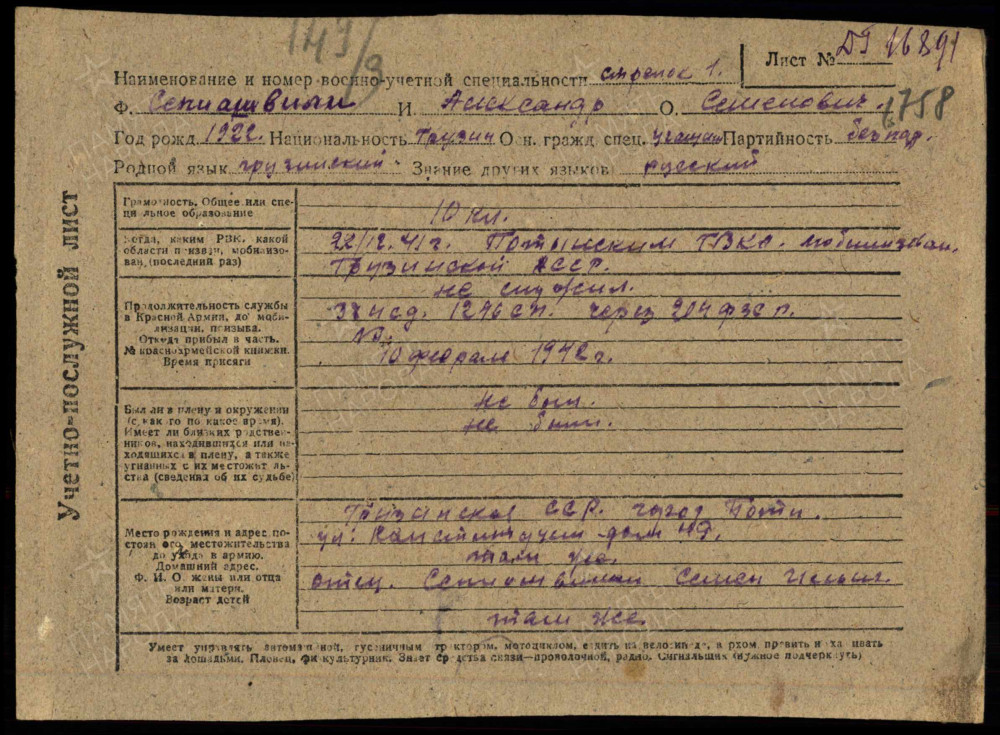 149/9
Лист № 16891
Наименование и номер военно-учетной специальности стрелок 1.
Ф. Сепиашвили И. Александр О. Семенович.
1758
Год рожд. 1922. Национальность Грузин Осн. гражд. спец. учащий Партийность безпар.
Родной язык грузинский Знание других языков русский
Учетно-послужной лист
Грамотность. Общее или спе-
циальное образование
10 кл.
Когда, каким РВК, какой
области призван, мобилизо-
ван, (последний раз)
22/12.41г. Потийским ГВКО. мобилизован.
Грузинской ССР.
Продолжительность службы
в Красной Армии, до моби-
лизации, призыва.
Откуда прибыл в часть.
№ красноармейской книжки.
Время присяги
не служил.
1246 сп. через 204 фзсп.
№
10 февраля 1942г.
Был ли в плену и окружении
(с как го по какое время).
Имеет ли близких родствен-
ников, находившихся или на-
ходящихся в плену, а также
угнанных с их местожитель-
ства (сведения об их судьбе)
не был.
не были.
Место рождения и адрес по-
стоян ого местожительства
до ухода в армию.
Домашний адрес.
Ф. И. О. жены или отца
или матери.
Возраст детей
Грузинская ССР. город Поти.
ул: дом
там же.
отец. Сепиашвили Семен
там же.
Умеет управлять автомашиной, гусеничным трактором, мотоциклом, ездить на велосипеде, верхом, править и ухаживать
за лошадьми. Пловец, физкультурник. Знает средства связи—проволочной, радио. Сигнальщик (нужное подчеркнуть)
ПАМЯТЬ НАРОДА